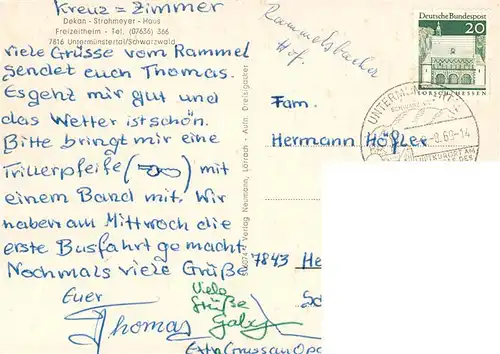 Kreuz = Zimmer
Dekan - Strohmeyer - Haus
Freizeitheim - Tel. (07636) 366
7816 Untermünstertal/Schwarzwald
viele Grüsse vom Rammel
sendet euch Thomas.
Es genz mir gut und
das Wetter ist schön.
Bitte bringt mir eine
Trillerpfeife ( ) mit
einem Band mit. Wir
haben am Mittwoch die
erste Busfahrt gemacht.
Nochmals viele Grüße
Euer
Thomas
Viele
Grüße
Gaby
Extra Grüsse an Opa
Verlag Neumann, Lörrach - Aufn. Dreisigacker
Rammelsbacher
Hof.
Deutsche Bundespost
20
LORSCH/HESSEN
UNTERM
9-14
LUFTKURORT AM
Fam.
Hermann Höfler
7843 He